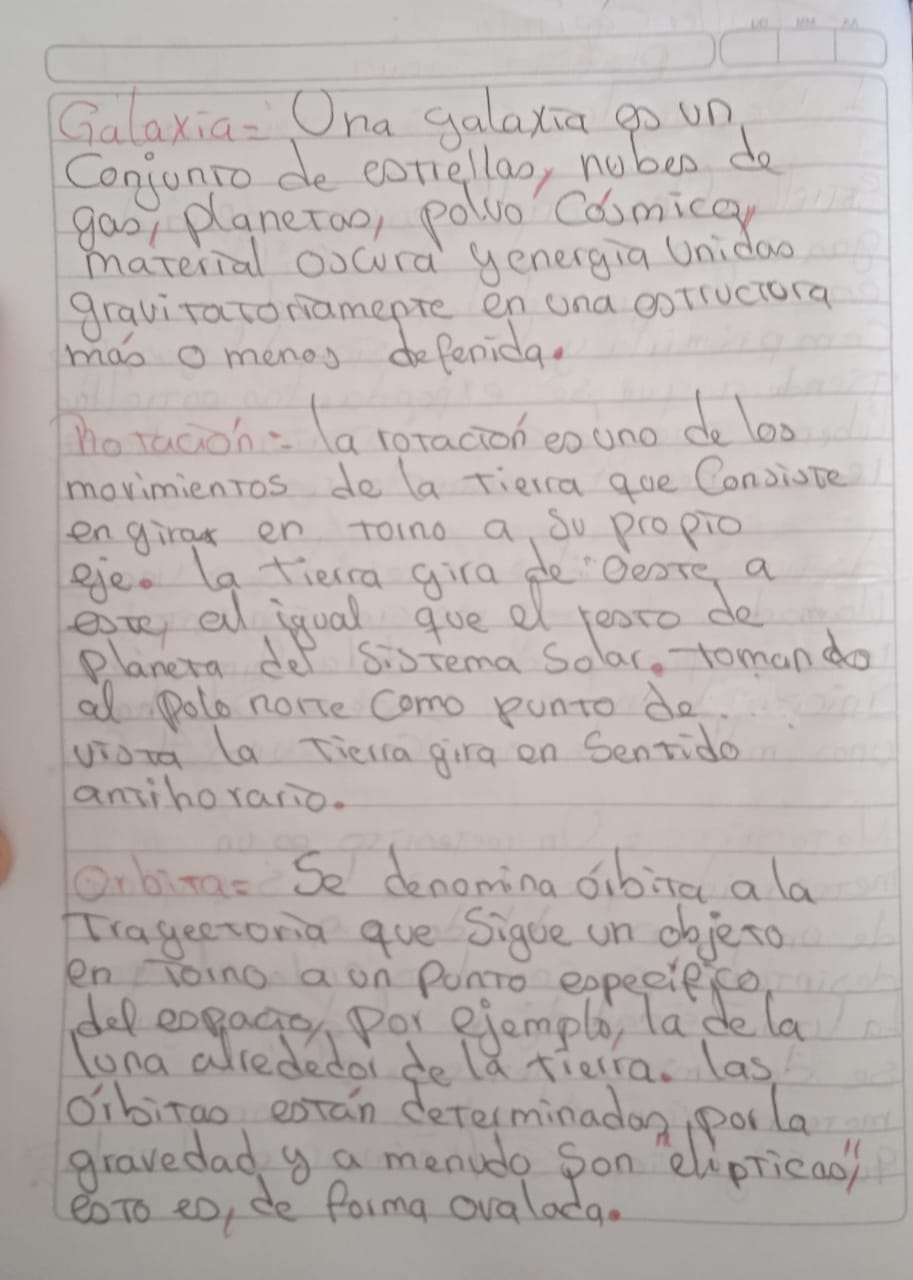 DD MM AA
Galaxia = Una galaxia es un
Conjunto de estrellas, nubes de
gas, planetas, polvo Cósmico,
material oscura y energía Unidas
gravitatoriamente en una estructura
más o menos defenida.
Rotación = la rotación es uno de los
movimientos de la tierra que Consiste
en girar en torno a su propio
eje. la tierra gira de Oeste a
este, al igual que el resto de
planeta del Sistema Solar. tomando
al polo norte Como punto de
vista la tierra gira en Sentido
antihorario.
Orbita = Se denomina órbita a la
Trageetoria que Sigue un objeto
en torno a un punto especifico
del espacio, Por ejemplo, la de la
luna alrededor de la tierra. las
órbitas están determinadas por la
gravedad y a menudo Son "elípticas",
esto es, de forma ovalada.